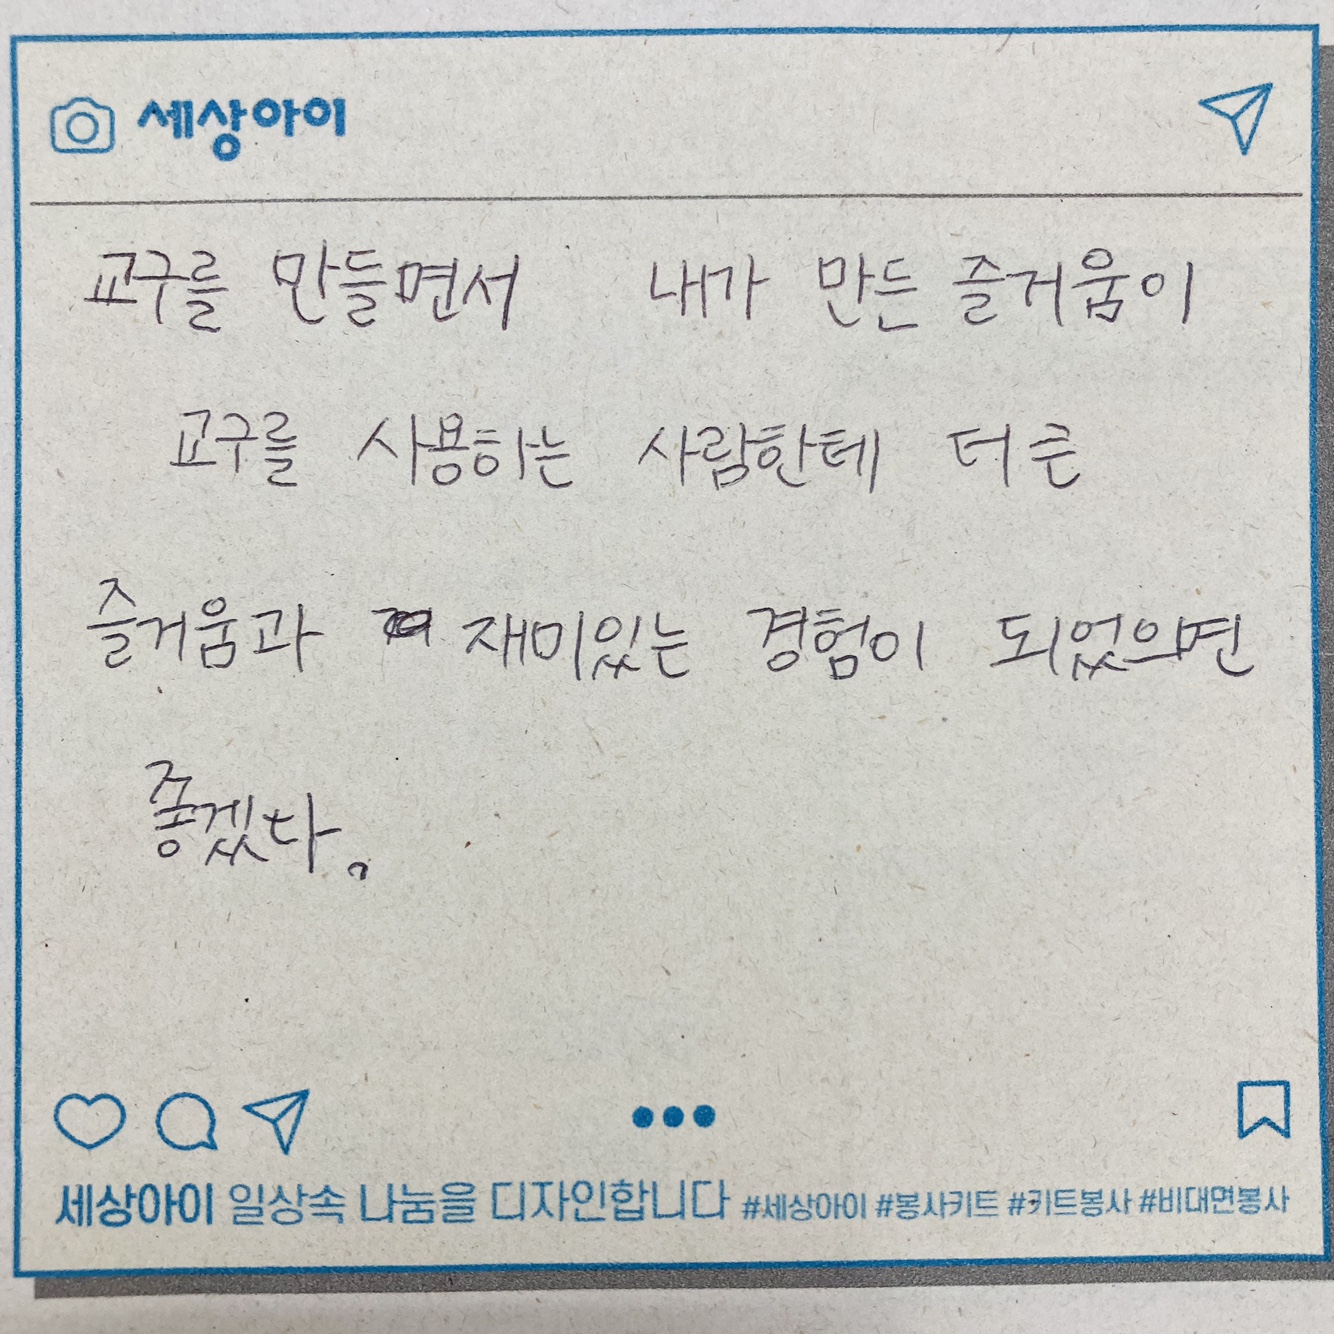 세상아이
교구를 만들면서 내가 만든 즐거움이
교구를 사용하는 사람한테 더 큰
즐거움과 재미있는 경험이 되었으면
좋겠다.
세상아이 일상속 나눔을 디자인합니다 #세상아이 #봉사키트 #키트봉사 #비대면봉사